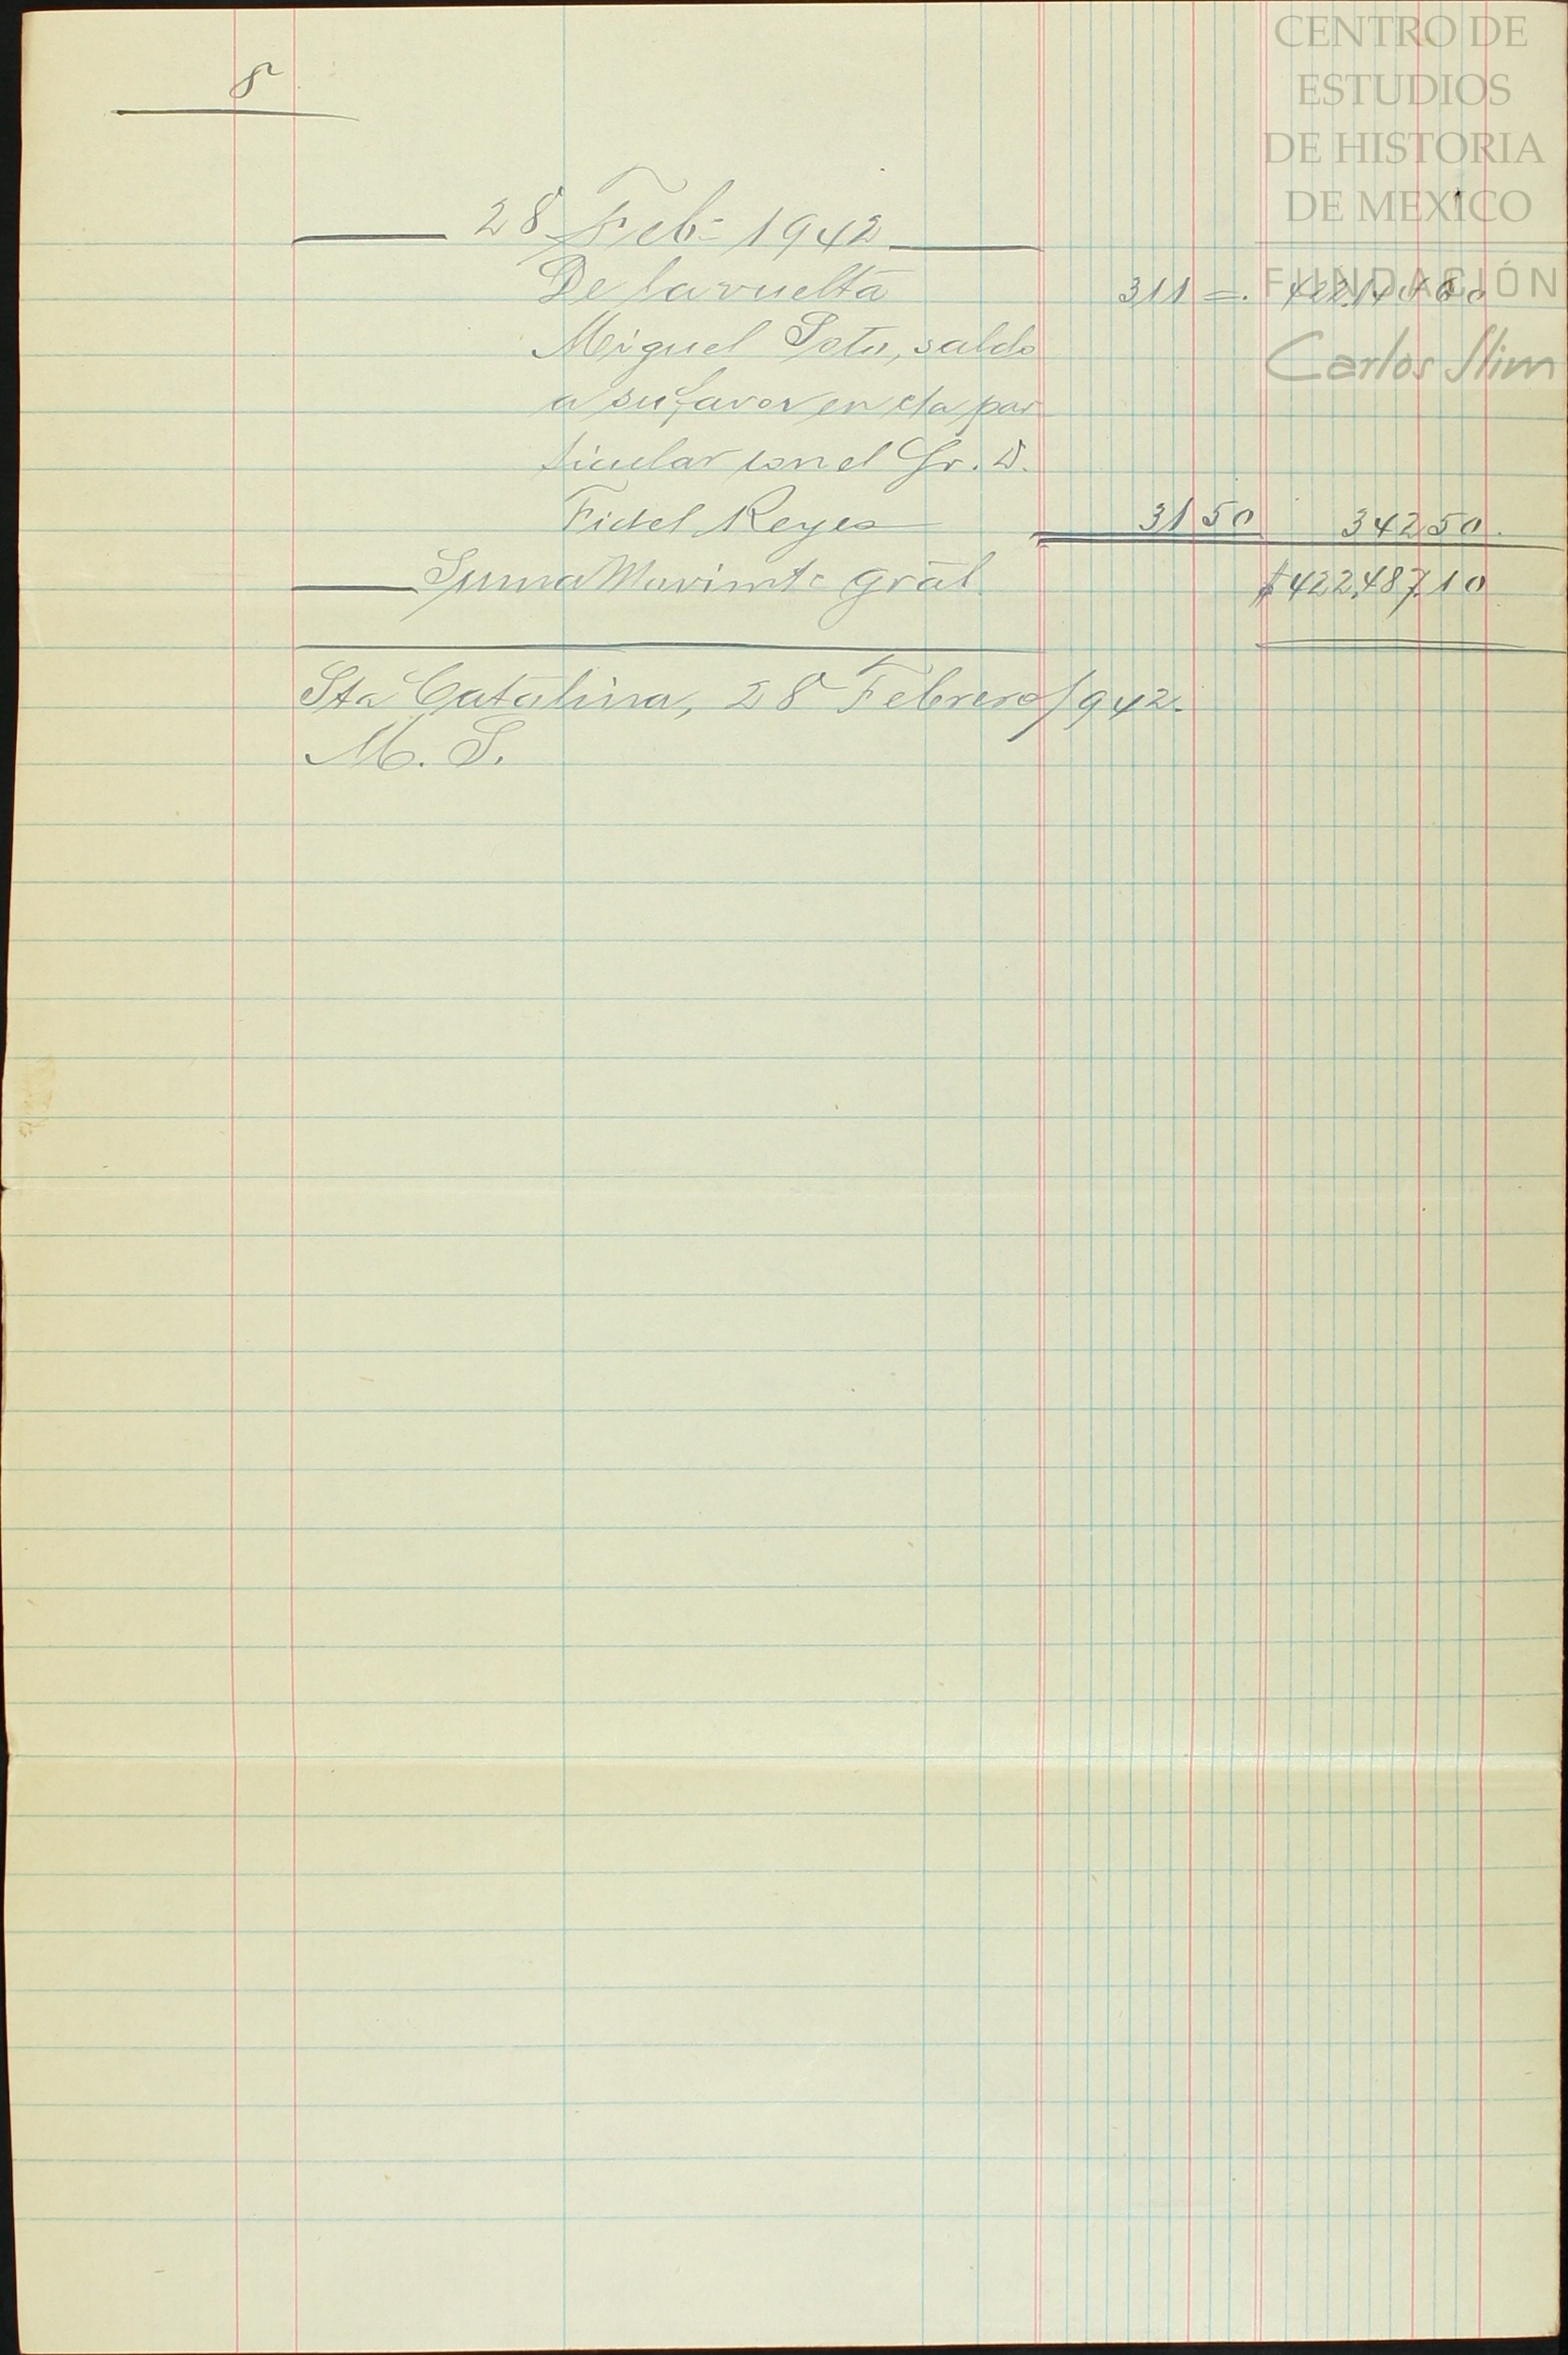 8
28 Feb- 1942
De la vuelta 311 =. 422.144 60
Miguel Soto, saldo
a su favor en cta par
ticular con el Sr. D.
Fidel Reyes 31 50 342 50.
Suma Movimto Gräl $422,487.10
Sta Catalina, 28 Febrero/942.
M. S.
CENTRO DE
ESTUDIOS
DE HISTORIA
DE MEXICO
FUNDACIÓN
Carlos Slim